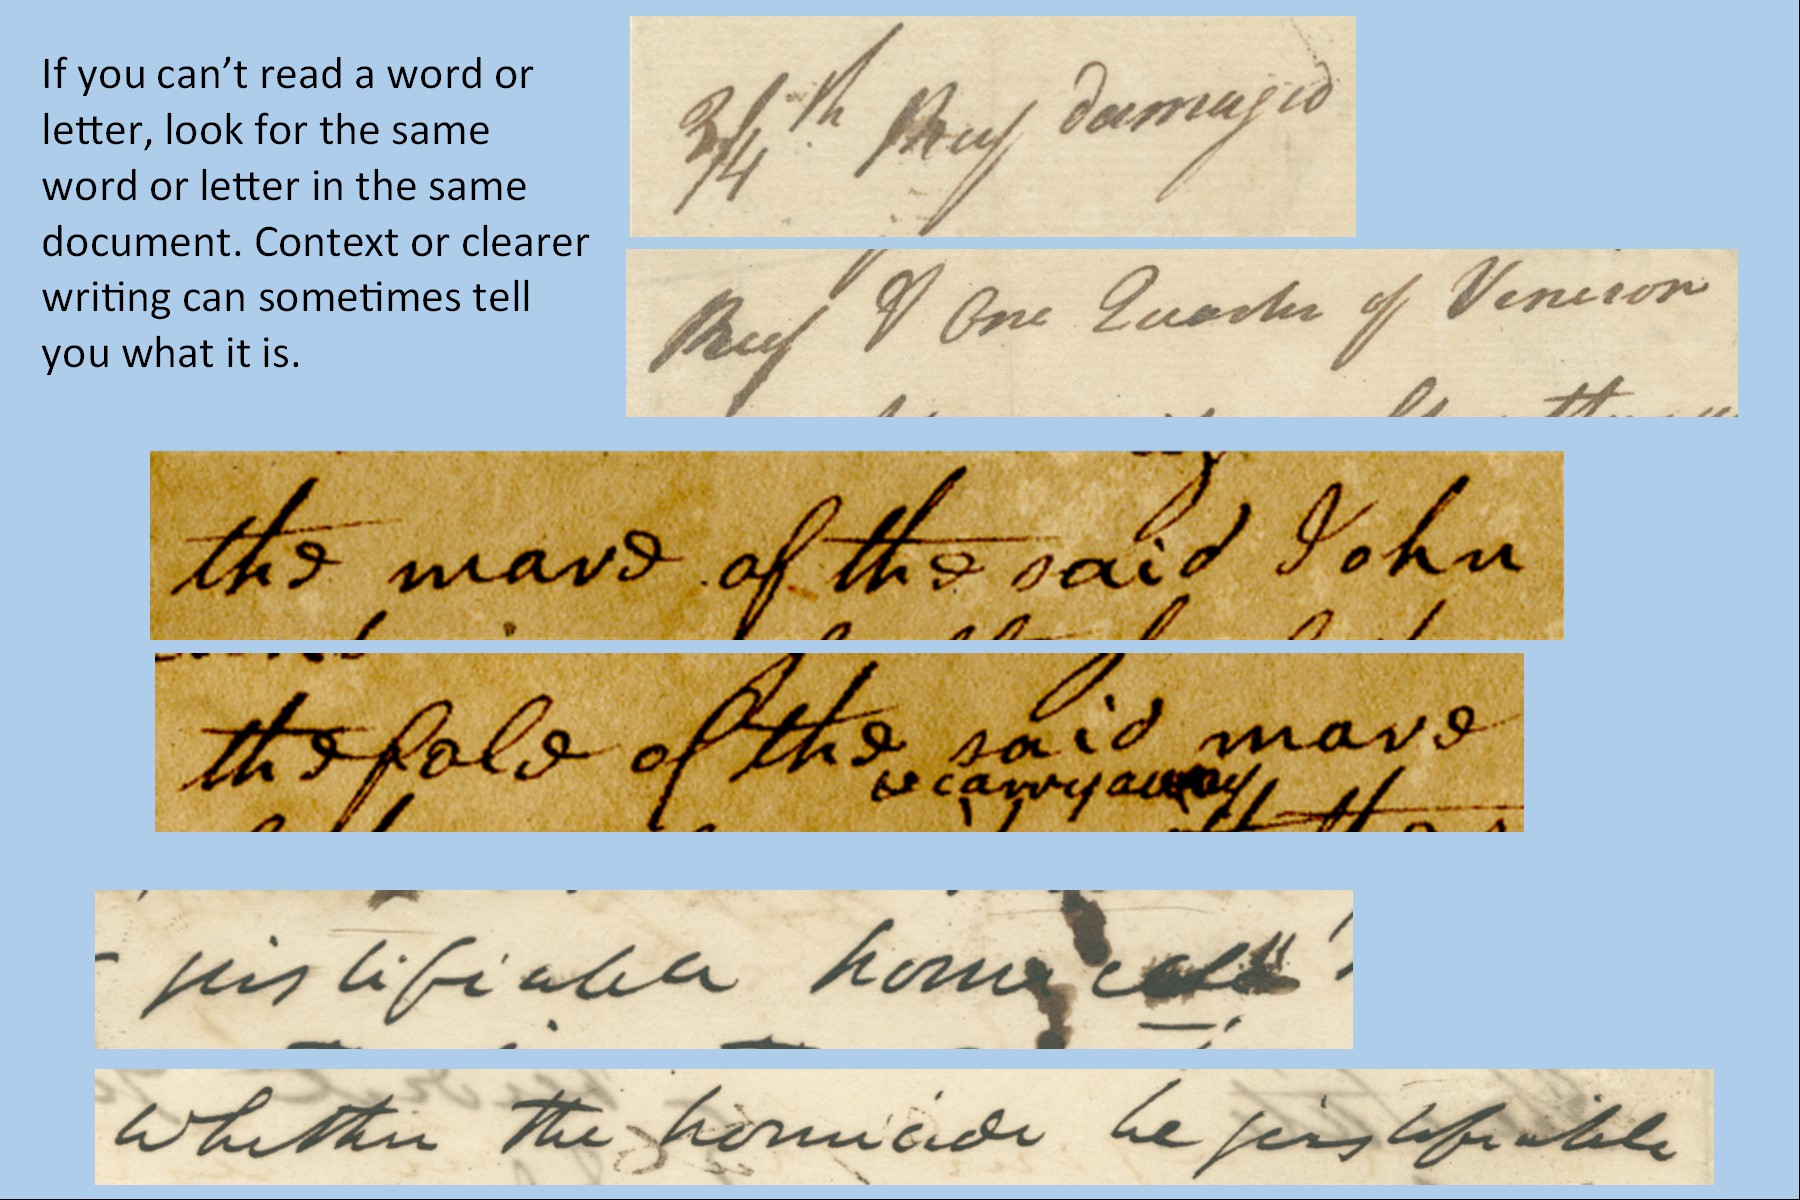 If you can’t read a word or
letter, look for the same
word or letter in the same
document. Context or clearer
writing can sometimes tell
you what it is.
3/4th Beef damaged
Beef & One Quarter of Venison
the mare of the said John
the fole of the said mare
& carry away
justifiable homicide
whether the homicide be justifiable